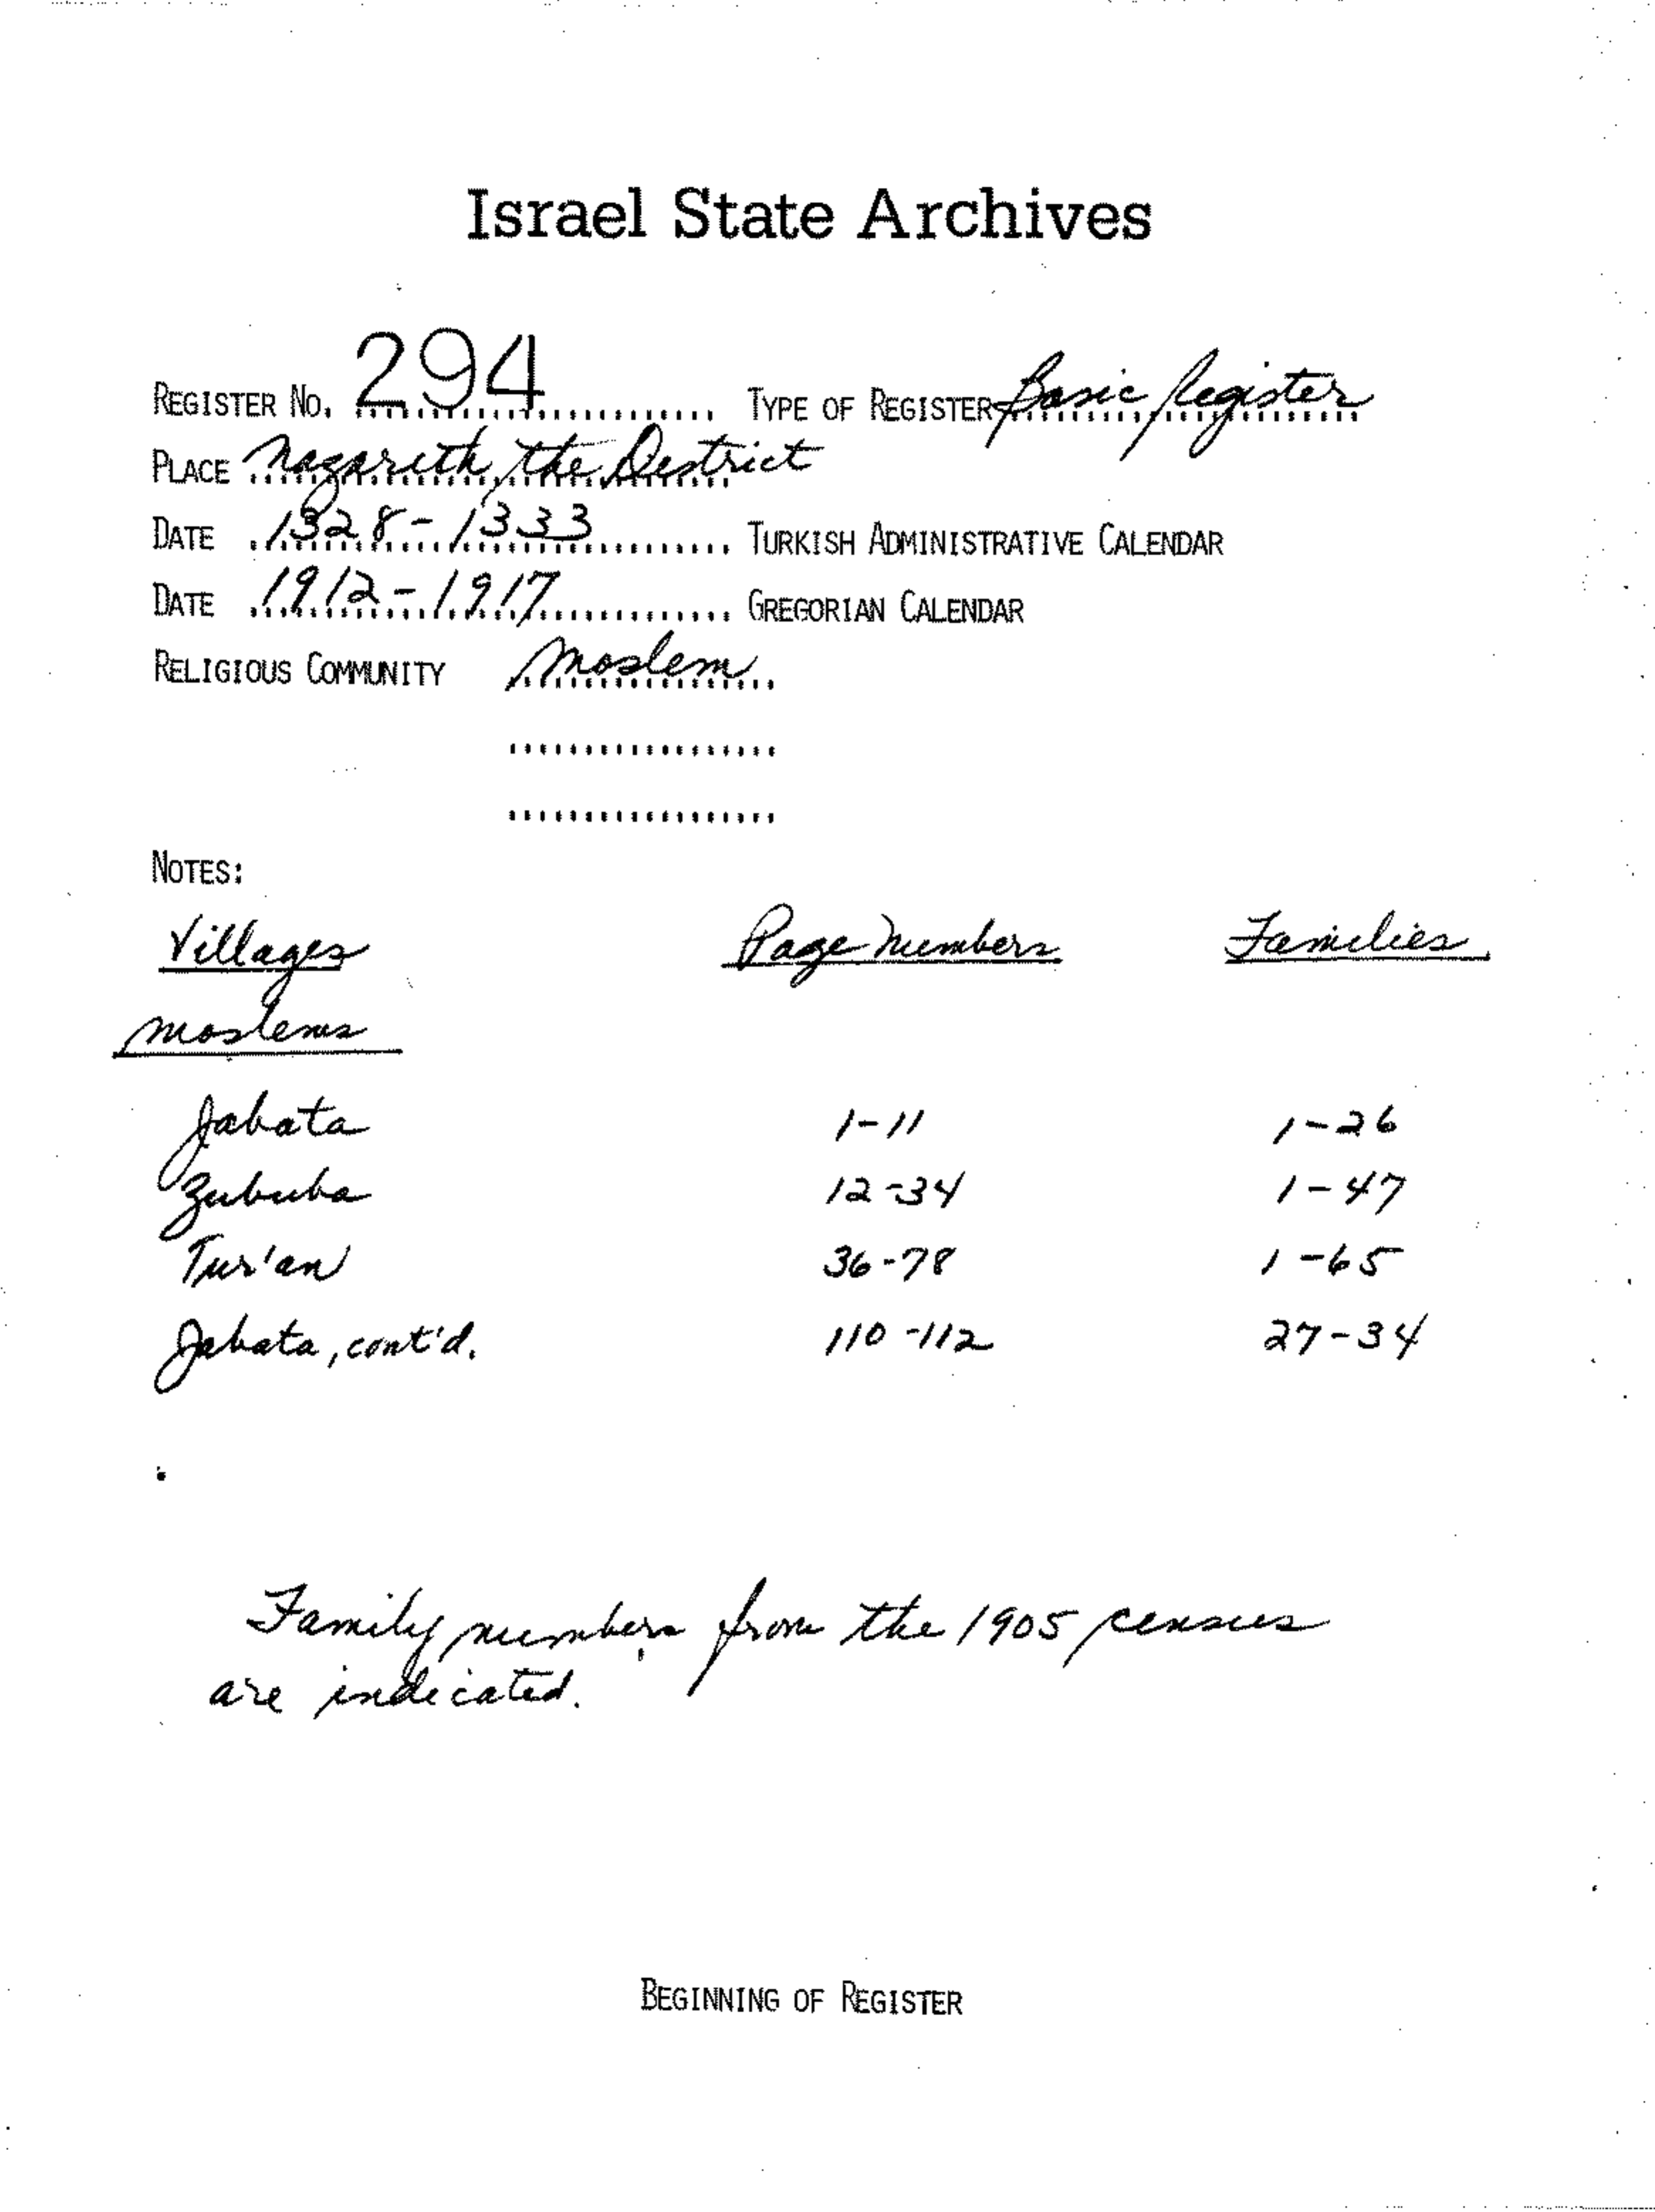 Israel State Archives
REGISTER NO. 294 TYPE OF REGISTER Basic Register
PLACE Nazareth, the District
DATE 1328-1333 TURKISH ADMINISTRATIVE CALENDAR
DATE 1912-1917 GREGORIAN CALENDAR
RELIGIOUS COMMUNITY Moslem
NOTES:
Villages Page Numbers Families
Moslems
Jabata 1-11 1-26
Zububa 12-34 1-47
Tur'an 36-78 1-65
Jabata, cont'd. 110-112 27-34
Family numbers from the 1905 census
are indicated.
BEGINNING OF REGISTER